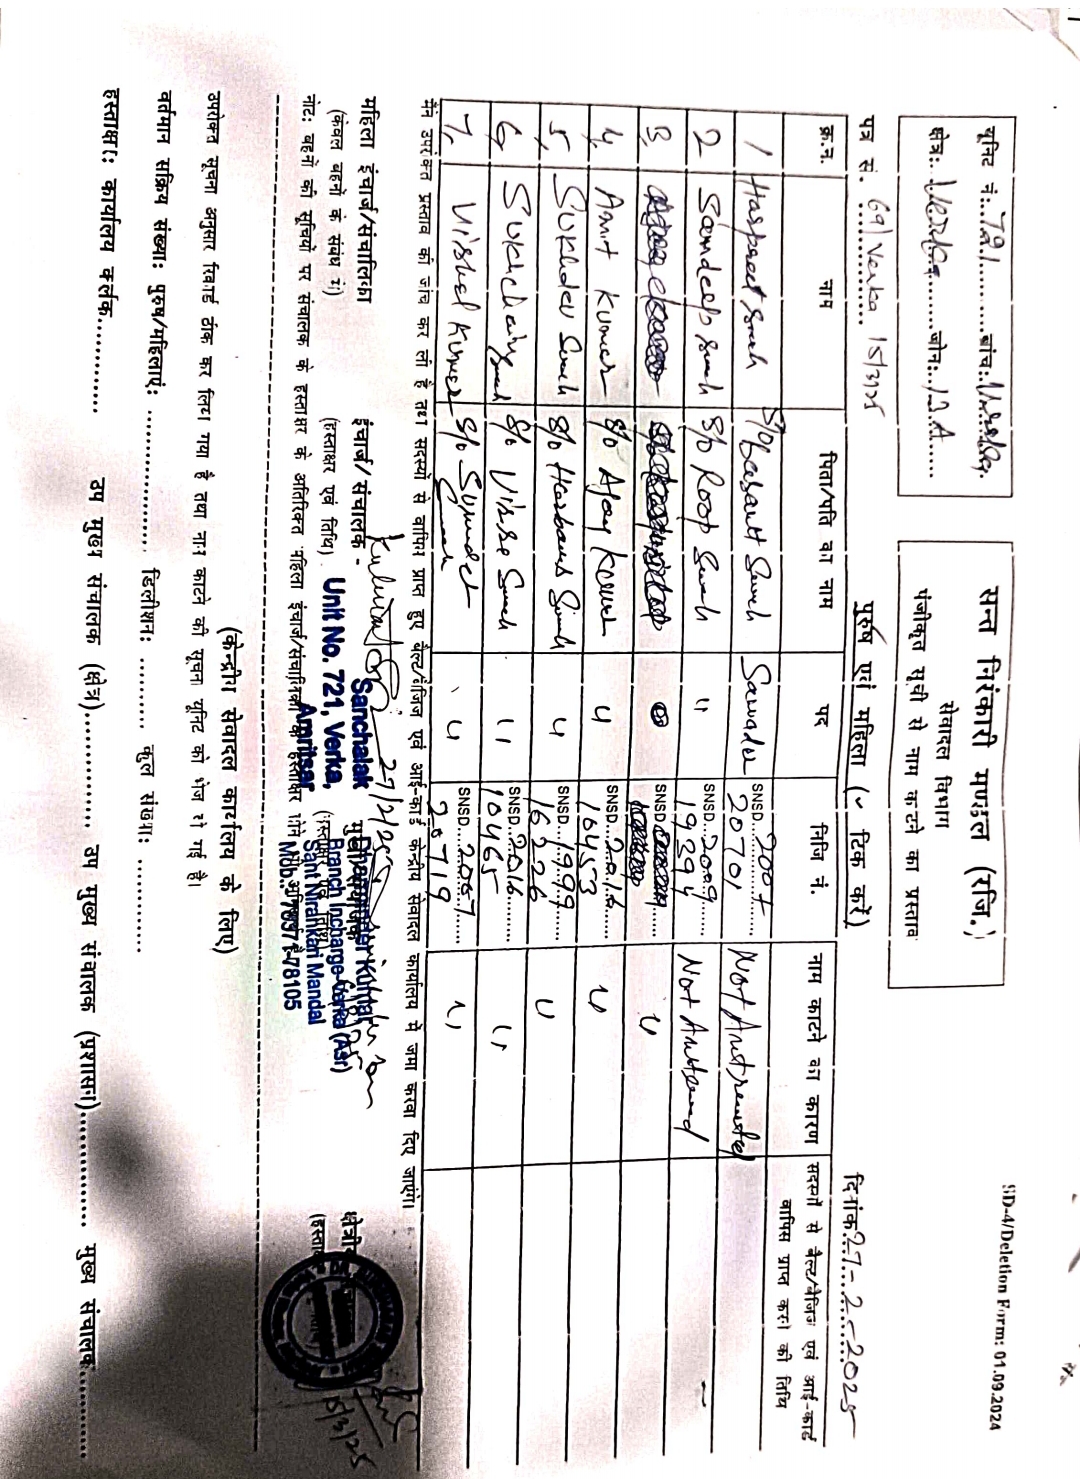 SD-4/Deletion Form: 01.09.2024
सन्त निरंकारी मण्डल (रजि.)
सेवादल विभाग
पंजीकृत सूची से नाम काटने का प्रस्ताव
यूनिट नं:..721..........ब्रांच:..Verka.
क्षेत्र:..Verka..........जोन:..13.A......
दिनांक 27-2-2025
पत्र सं. 69/Verka 15/3/25
पुरुष एवं महिला (✓ टिक करें)
क्र.न. नाम पिता/पति का नाम पद निजि नं. नाम काटने का कारण सदस्यों से बैल्ट/बैजिज एवं आई-कार्ड वापिस प्राप्त करने की तिथि
1 Harpreet Singh S/o Basant Singh Sewadar SNSD...2007 20701
2 Sandeep Singh S/o Roop Singh " SNSD...2009 19394 Not
3, SNSD "
4, Amit Kumar S/o Ajay Kumar " SNSD...2016 10453 "
5, Sukhdev Singh S/o Harbans Singh " SNSD...1999 16226 "
6, Sukhchain Singh S/o Singh " SNSD...2016 10465 "
7, Vishal Kumar S/o " SNSD...2007 20719 "
मैने उपरोक्त प्रस्ताव की जांच कर ली है तथा सदस्यों से वापिस प्राप्त हुए बैल्ट/बैजिज एवं आई-कार्ड केन्द्रीय सेवादल कार्यालय में जमा करवा दिए जाएंगे।
27/2/25
महिला इंचार्ज/संचालिका इंचार्ज/संचालक -
(केवल बहनों के संबंध में) (हस्ताक्षर एवं तिथि)
Sanchalak
Unit No. 721, Verka,
Amritsar
Branch Incharge-Verka (Asr)
Sant Nirankari Mandal
15/3/25
नोट: बहनों की सूचियों पर संचालक के हस्ताक्षर के अतिरिक्त महिला इंचार्ज/संचालिका के हस्ताक्षर होने
उपरोक्त सूचना अनुसार रिकार्ड ठीक कर लिया गया है तथा नाम काटने की सूचना यूनिट को भेज दी गई है।
(केन्द्रीय सेवादल कार्यालय के लिए)
वर्तमान सक्रिय संख्या: पुरुष/महिलाएं: .................. डिलीशन: .......... कुल संख्या: ............
हस्ताक्षर: कार्यालय क्लर्क............ उप मुख्य संचालक (क्षेत्र)............ उप मुख्य संचालक (प्रशासन)................ मुख्य संचालक............